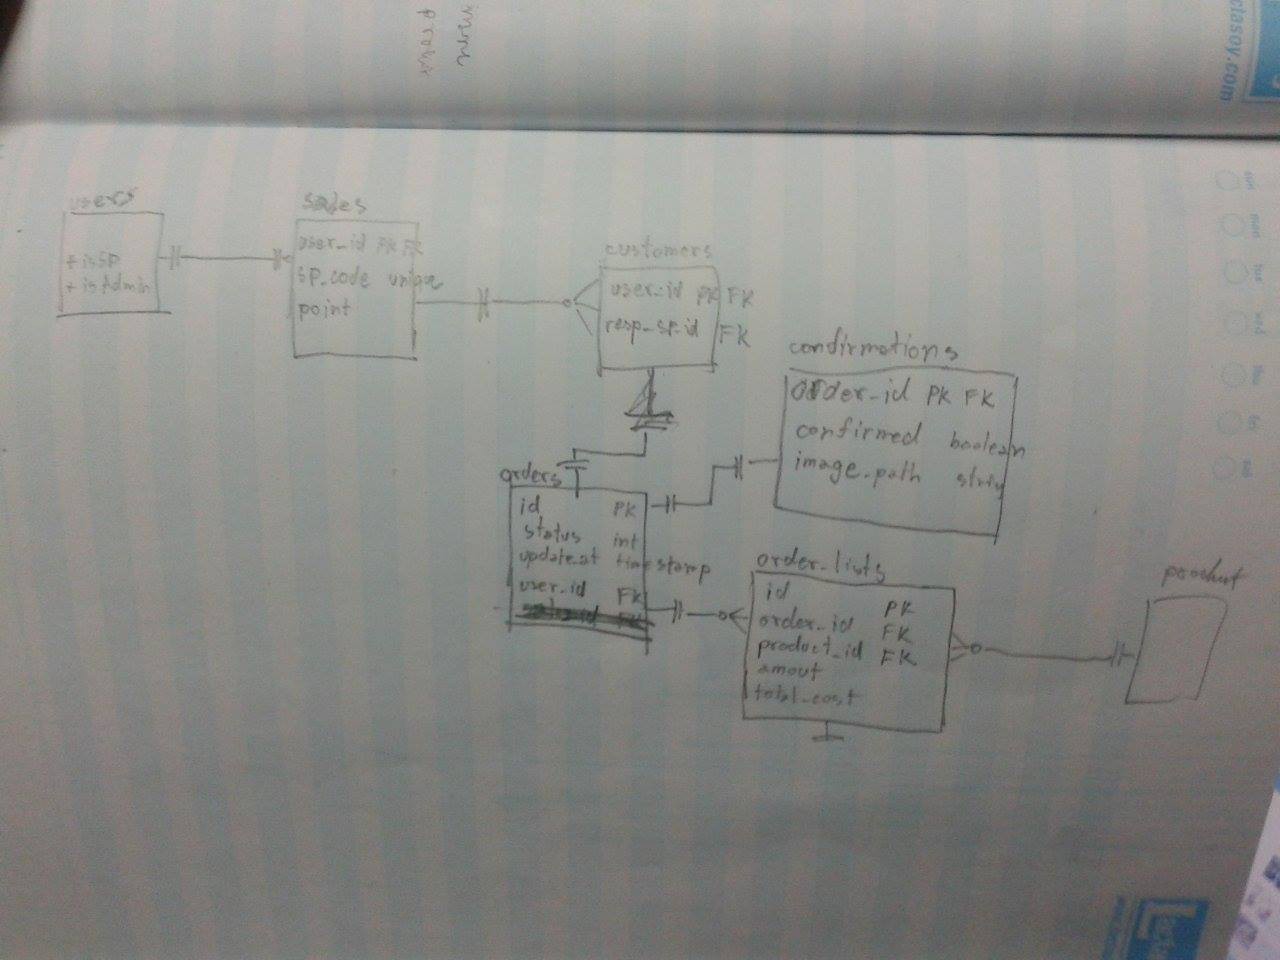 ctasoy.com
users
+ isSP
+ isAdmin
sales
user_id PK FK
sp_code unique
point
customers
user_id PK FK
resp_sp_id FK
confirmations
order_id PK FK
confirmed boolean
image_path string
orders
id PK
status int
update_at timestamp
user_id FK
FK
order_lists
id PK
order_id FK
product_id FK
amout
total_cost
product